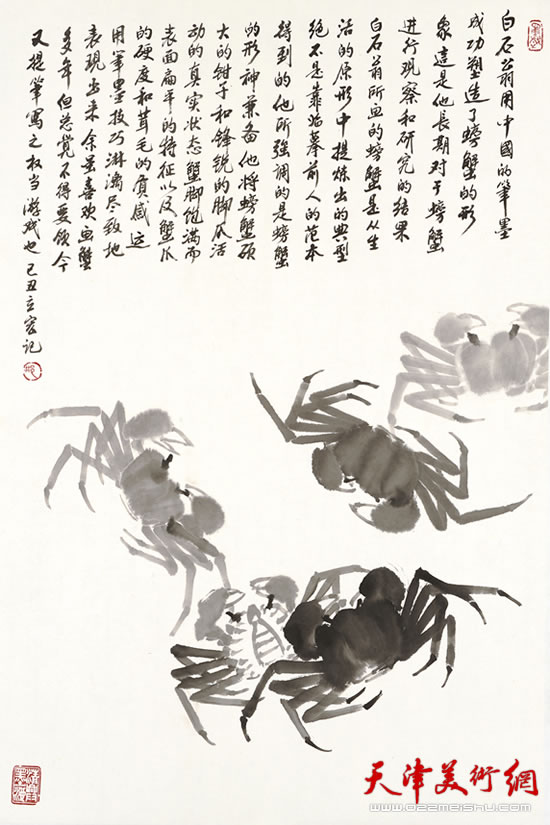 白石翁用中國的筆墨
成功塑造了螃蟹的形
象這是他長期对于螃蟹
進行观察和研究的结果
白石翁所画的螃蟹是从生
活的原形中提煉出的典型
绝不是靠临摹前人的范本
得到的他所强調的是螃蟹
的形神兼备他將螃蟹硕
大的钳子和锋锐的脚爪活
动的真实状态蟹脚饱满而
表面扁平的特征以及蟹爪
的硬度和茸毛的質感运
用筆墨技巧淋漓尽致地
表現出来余虽喜欢画蟹
多年但总覺不得要領今
又提筆寫之权当游戏也己丑立宏记
天津美術網
www.022meishu.com